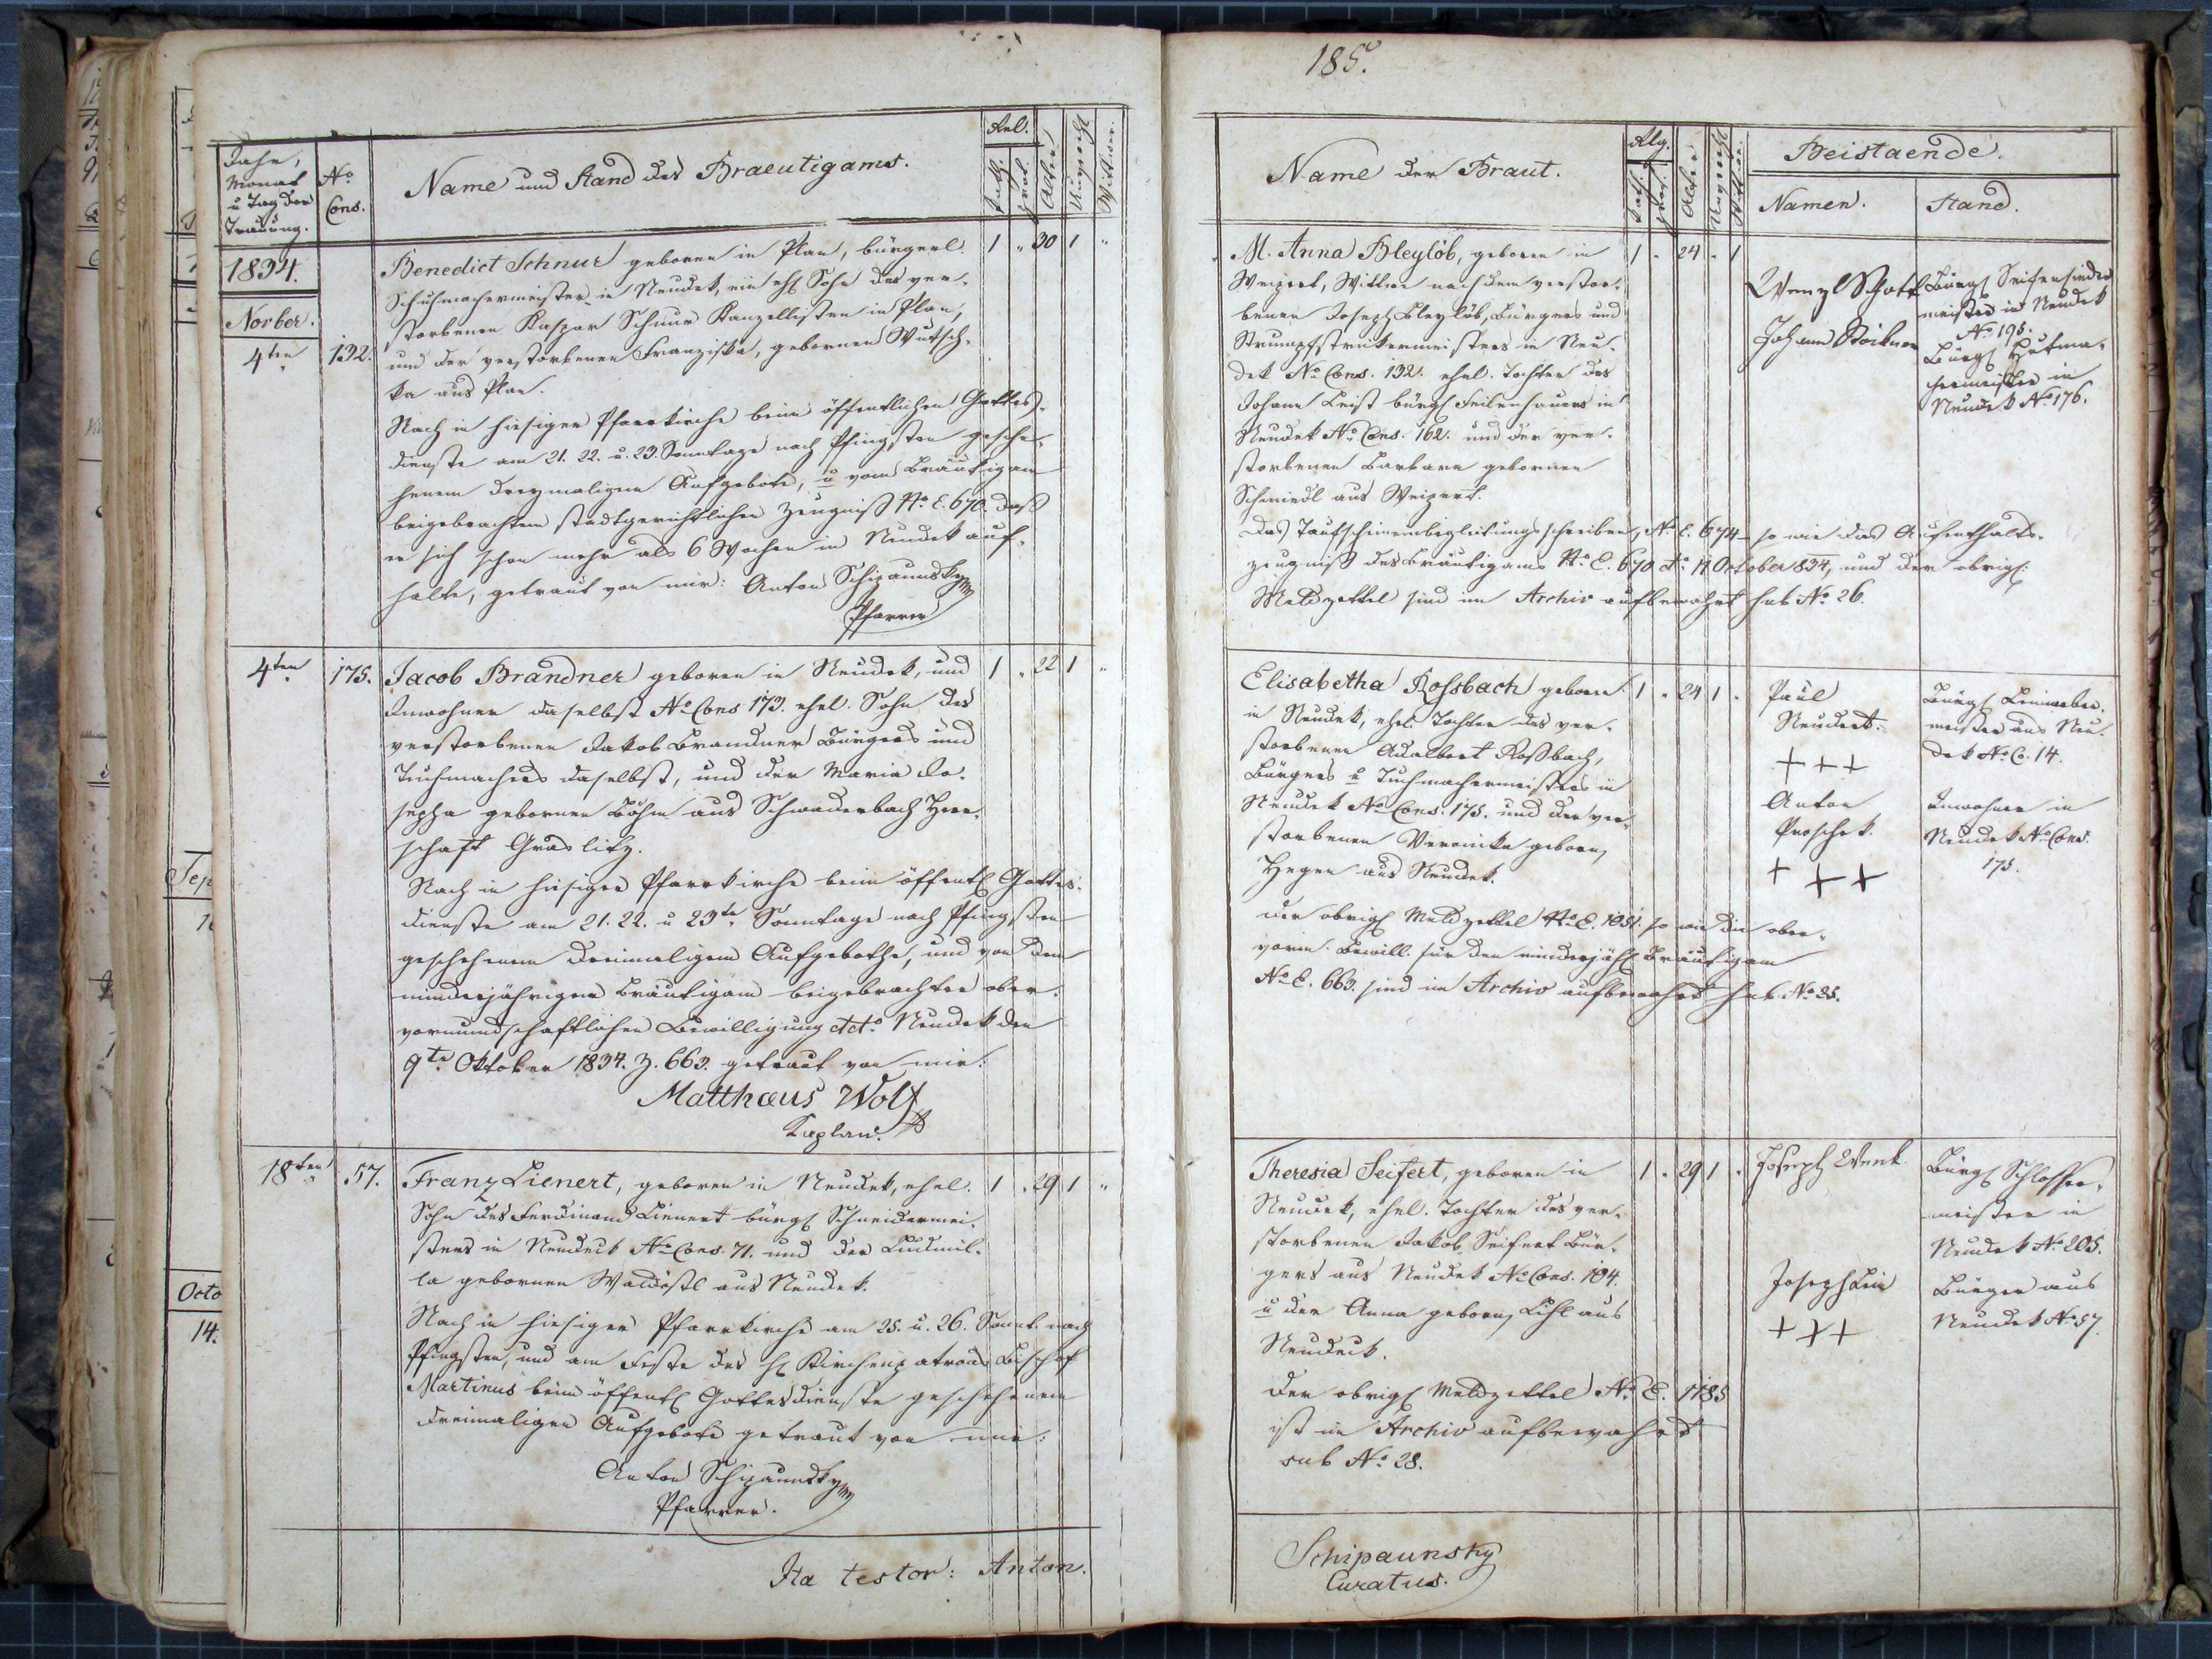 185.
Jahr,
Monat
u Tag der
Trauung.
No
Cons.
Name und Stand des Braeutigams.
Rel.
Kath.
prot.
Alter
Ungereiht
Wittwer.
1834.
Novber.
4ten
132.
Benedict Schnur geboren in Plan, bürgerl.
Schuhmachermeister in Neudek, ein ehl Sohn des ver-
storbenen Kaspar Schnur Kanzellisten in Plan,
und der verstorbenen Franziska, gebornen Wutsch-
ka aus Plan.
Nach in hiesiger Pfarrkirche beim öffentlichen Gottes-
dienste am 21. 22. u. 23. Sonntage nach Pfingsten gesche-
henem dreymaligem Aufgebote, u vom Bräutigam
beigebrachtem stadtgerichtlichen Zeugniß No. E. 670. daß
er sich schon mehr als 6 Wochen in Neudek auf-
halte, getraut von mir: Anton Schipaunsky
Pfarrer
1 " 30 1 "
4ten
175.
Jacob Brandner geboren in Neudek, und
Inwohner daselbst No Cons 173. ehel. Sohn des
verstorbenen Jakob Brandner Bürgers und
Tuchmachers daselbst, und der Maria Jo-
sepha gebornen Böhm aus Schwaderbach Herr-
schaft Graslitz.
Nach in hiesiger Pfarrkirche beim öffentl Gottes-
dienste am 21. 22. u 23te Sonntage nach Pfingsten
geschehenem dreimaligem Aufgebothe, und von dem
minderjährigen Bräutigam beigebrachter ober-
vormundschaftlichen Bewilligung dcto Neudek den
9te Oktober 1834. Z. 663. getraut von mir:
Matthæus Wolf
Kaplan.
1 " 22 1 "
18ten
57.
Franz Lienert, geboren in Neudek, ehel.
Sohn des Ferdinand Lienert bürgl Schneidermei-
sters in Neudeck No Cons. 71. und der Ludmil-
la gebornen Waldößl aus Neudek.
Nach in hiesiger Pfarrkirche am 25. u. 26. Sonnt. nach
Pfingsten, und am Feste des hl Kirchenpatrons Bischof
Martinus beim öffentl Gottesdienste geschehenem
dreimaligen Aufgebote getraut von mir:
Anton Schipaunsky
Pfarrer.
1 " 29 1 "
Ita testor: Anton.
Name der Braut.
Rlg.
Kath.
prot.
Alter
Ungereiht
Wittwe.
Beistaende.
Namen.
Stand.
M. Anna Bleylöb, geboren in
Weipert, Wittwe nach dem verstor-
benen Joseph Bleylöb, Bürgers und
Strumpfstrikermeisters in Neu-
dek No Cons. 132. ehel. Tochter des
Johann Leist bürgl Feilenhauers in
Neudek No Cons. 162. und der ver-
storbenen Barbara gebornen
Schmiedl aus Weipert.
Das Taufscheineinbegleitungsschreiben, No. E. 674 so wie das Aufenthalts-
zeugniß des Bräutigams No. E. 670 dto 11 October 834, und der obrigl
Meldzettel sind im Archiv aufbewahrt sub No. 26.
1 " 24 " 1
Wenzl Schott
Bürgl Seifensieder
meister in Neudek
No 195.
Johann
Bürgl Hutma-
chermeister in
Neudek No. 176.
Elisabetha Rossbach geboren
in Neudek, ehel. Tochter des ver-
storbenen Adalbert Roßbach,
Bürgers u Tuchmachermeisters in
Neudek No Cons. 175. und der ver-
storbenen Veronika geborn
Heger aus Neudek.
Der obrigl Meldzettel No. E. 1051. so wie die ober-
vorm. Bewill. für den minderjähl Bräutigam
No E. 663. sind im Archiv aufbewahrt sub. No 25.
1 " 24 1 "
Paul
Neudert.
+++
Bürgl Leinweber-
meister aus Neu-
dek No C. 14.
Anton
Proschek.
+++
Inwohner in
Neudek No Cons.
175.
Theresia Seifert, geboren in
Neudek, ehel. Tochter des ver-
storbenen Jakob Seifert Bür-
gers aus Neudek No Cons. 104.
u der Anna geborn Lihl aus
Neudeck.
Der obrigl Meldzettel No. E. 1185
ist im Archiv aufbewahrt
sub No. 28.
1 " 29 1 "
Joseph Wenk
Bürgl Schlosser-
meister in
Neudek No. 205.
Joseph
+++
Bürger aus
Neudek No 57.
Schipaunsky
Curatus.
Sep
Octo
14.